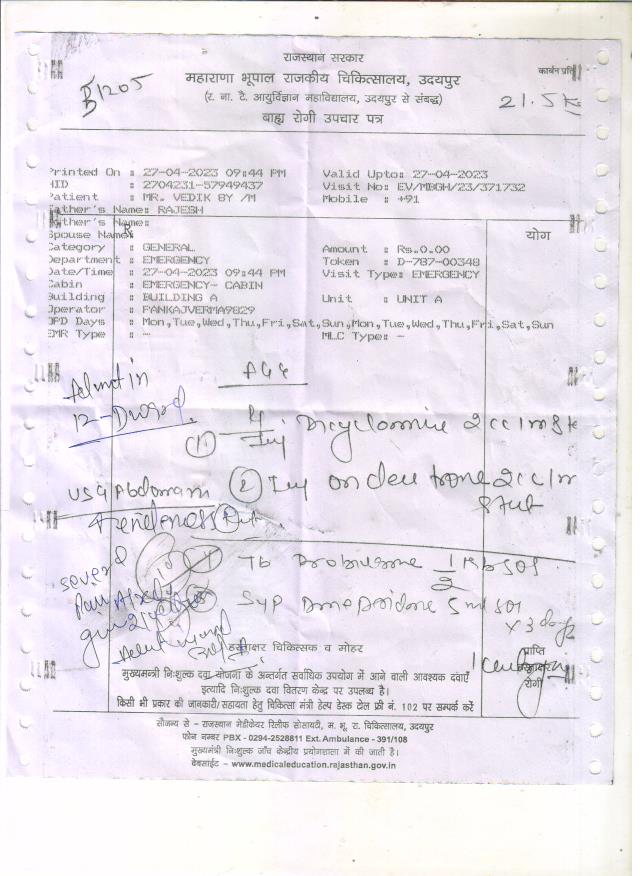 राजस्थान सरकार
महाराणा भूपाल राजकीय चिकित्सालय, उदयपुर
कार्बन प्रति
(र. ना. टै. आयुर्विज्ञान महाविद्यालय, उदयपुर से संबद्ध)
1205
21.5 k
बाह्य रोगी उपचार पत्र
Printed On : 27-04-2023 09:44 PM Valid Upto: 27-04-2023
HID : 2704231-57949437 Visit No: EV/MBGH/23/371732
Patient : MR. VEDIK BY /M Mobile : +91
Father's Name: RAJESH
Mother's Name:
Spouse Name:
योग
Category : GENERAL Amount : Rs.0.00
Department : EMERGENCY Token : D-787-00348
Date/Time : 27-04-2023 09:44 PM Visit Type: EMERGENCY
Cabin : EMERGENCY- CABIN
Building : BUILDING A Unit : UNIT A
Operator : PANKAJVERMA9829
OPD Days : Mon,Tue,Wed,Thu,Fri,Sat,Sun,Mon,Tue,Wed,Thu,Fri,Sat,Sun
EMR Type : - MLC Type: -
Admit in
12-D ward
① Inj Dicyclomine 2cc Im
USG Abdomen
② Inj ondensetrone 2cc Im
stat
severe
Pain
Syp Domperidone 5 ml sos
x 3 days
हस्ताक्षर चिकित्सक व मोहर
प्राप्ति
हस्ताक्षर
रोगी
मुख्यमन्त्री निःशुल्क दवा योजना के अन्तर्गत सर्वाधिक उपयोग में आने वाली आवश्यक दवाएँ
इत्यादि निःशुल्क दवा वितरण केन्द्र पर उपलब्ध है।
किसी भी प्रकार की जानकारी/सहायता हेतु चिकित्सा मंत्री हेल्प डेस्क टोल फ्री नं. 102 पर सम्पर्क करें
सौजन्य से - राजस्थान मेडीकेयर रिलीफ सोसायटी, म. भू. रा. चिकित्सालय, उदयपुर
फोन नम्बर PBX - 0294-2528811 Ext. Ambulance - 391/108
मुख्यमन्त्री निःशुल्क जाँच केन्द्रीय प्रयोगशाला में की जाती है।
वेबसाईट – www.medicaleducation.rajasthan.gov.in